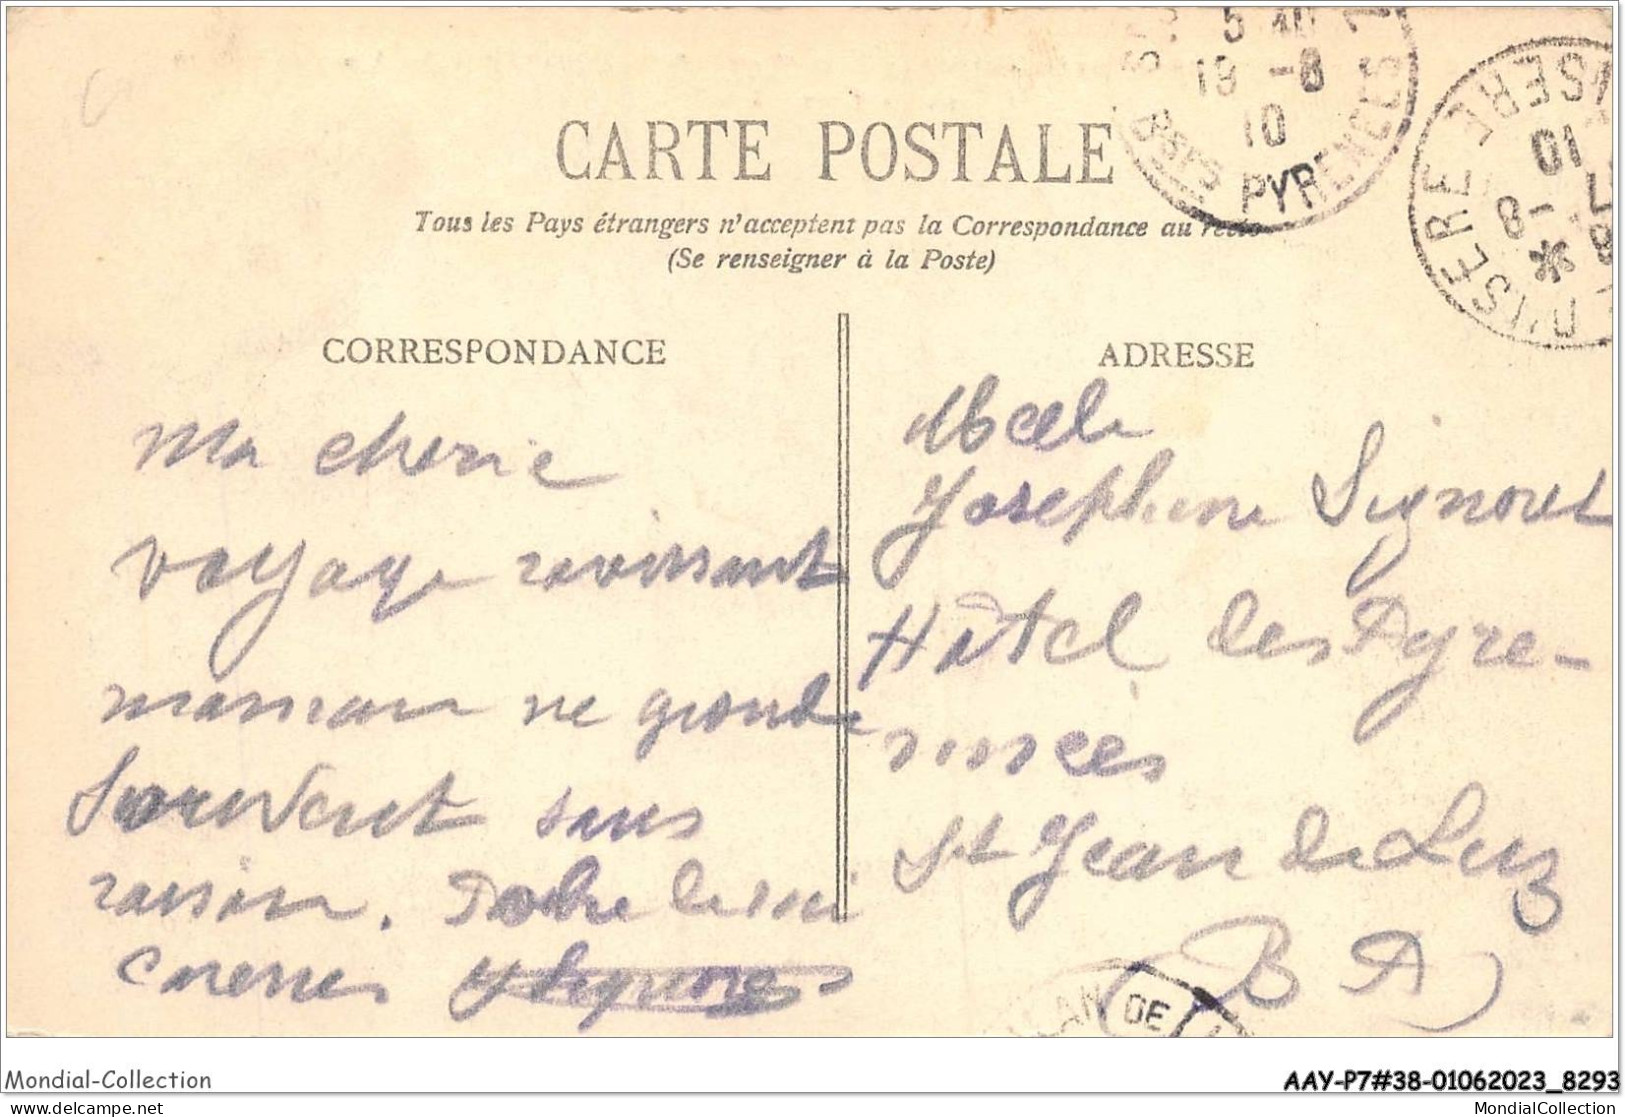 CARTE POSTALE
Tous les Pays étrangers n'acceptent pas la Correspondance au recto
(Se renseigner à la Poste)
5 40
19 -8
10
BSES PYRENEES
D'ISERE ISERE
8
-8
10
CORRESPONDANCE
ADRESSE
Ma cherie
voyage ravissant
maman ne gronde
souvent sans
raison.
Josephine Signoret
Hôtel des Pyre-
nnees
St Jean de Luz
(B A)
DE
Mondial-Collection
AAY-P7#38-01062023_8293
www.delcampe.net
MondialCollection